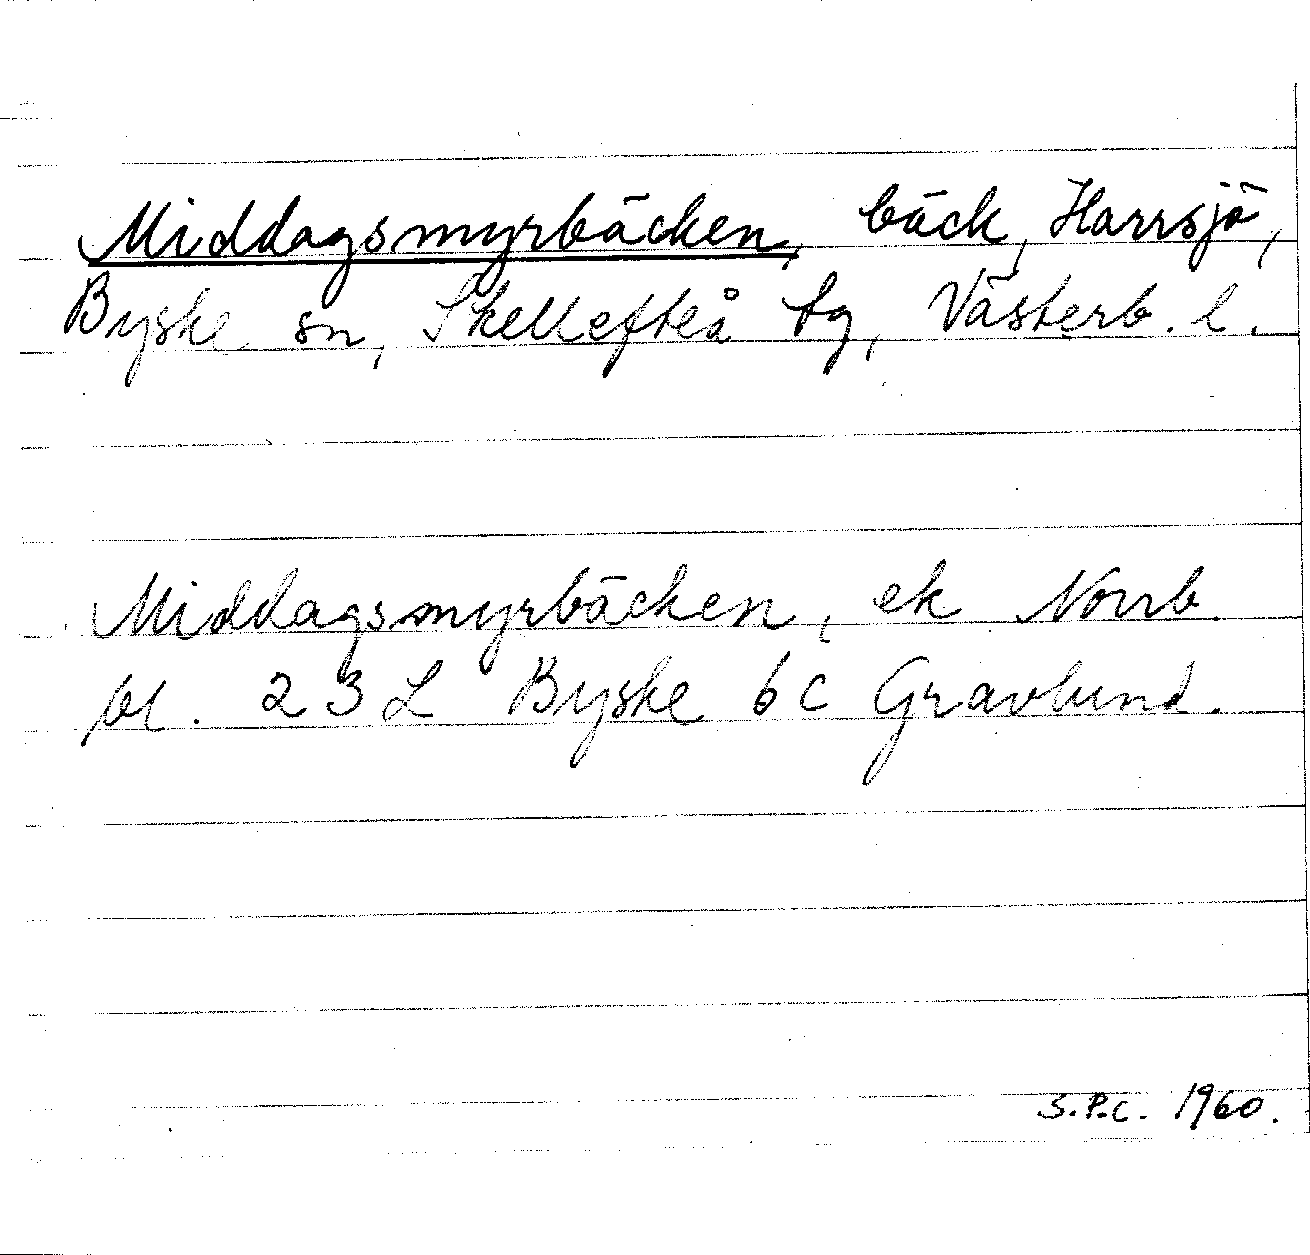 Middagsmyrbäcken, bäck, Harrsjö,
Byske sn, Skellefteå tg, Västerb. l.
Middagsmyrbäcken, ek Norrb.
bl. 23 L Byske 6 c Gravlund.
S.P.C. 1960.